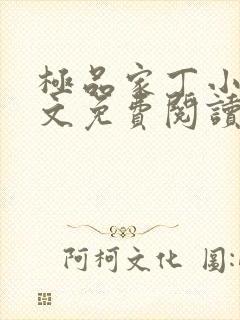 極品家丁小
文免費閱讀
阿柯文化 图: